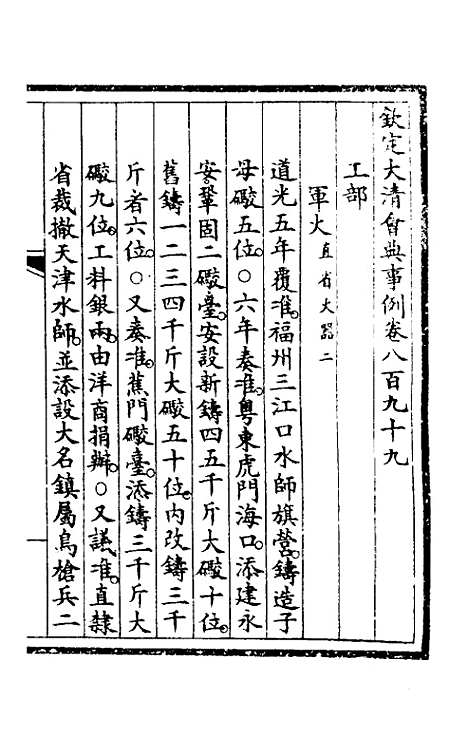 欽定大清會典事例卷八百九十九
工部
軍火直省火器二
道光五年覆准。福州三江口水師旗營。鑄造子
母礮五位。○六年奏准。粵東虎門海口。添建永
安鞏固二礮臺。安設新鑄四五千斤大礮十位。
舊鑄一二三四千斤大礮五十位。內改鑄三千
斤者六位。○又奏准。蕉門礮臺。添鑄三千斤大
礮九位。工料銀兩。由洋商捐辦。○又議准。直隸
省裁撤天津水師。並添設大名鎮屬鳥槍兵二